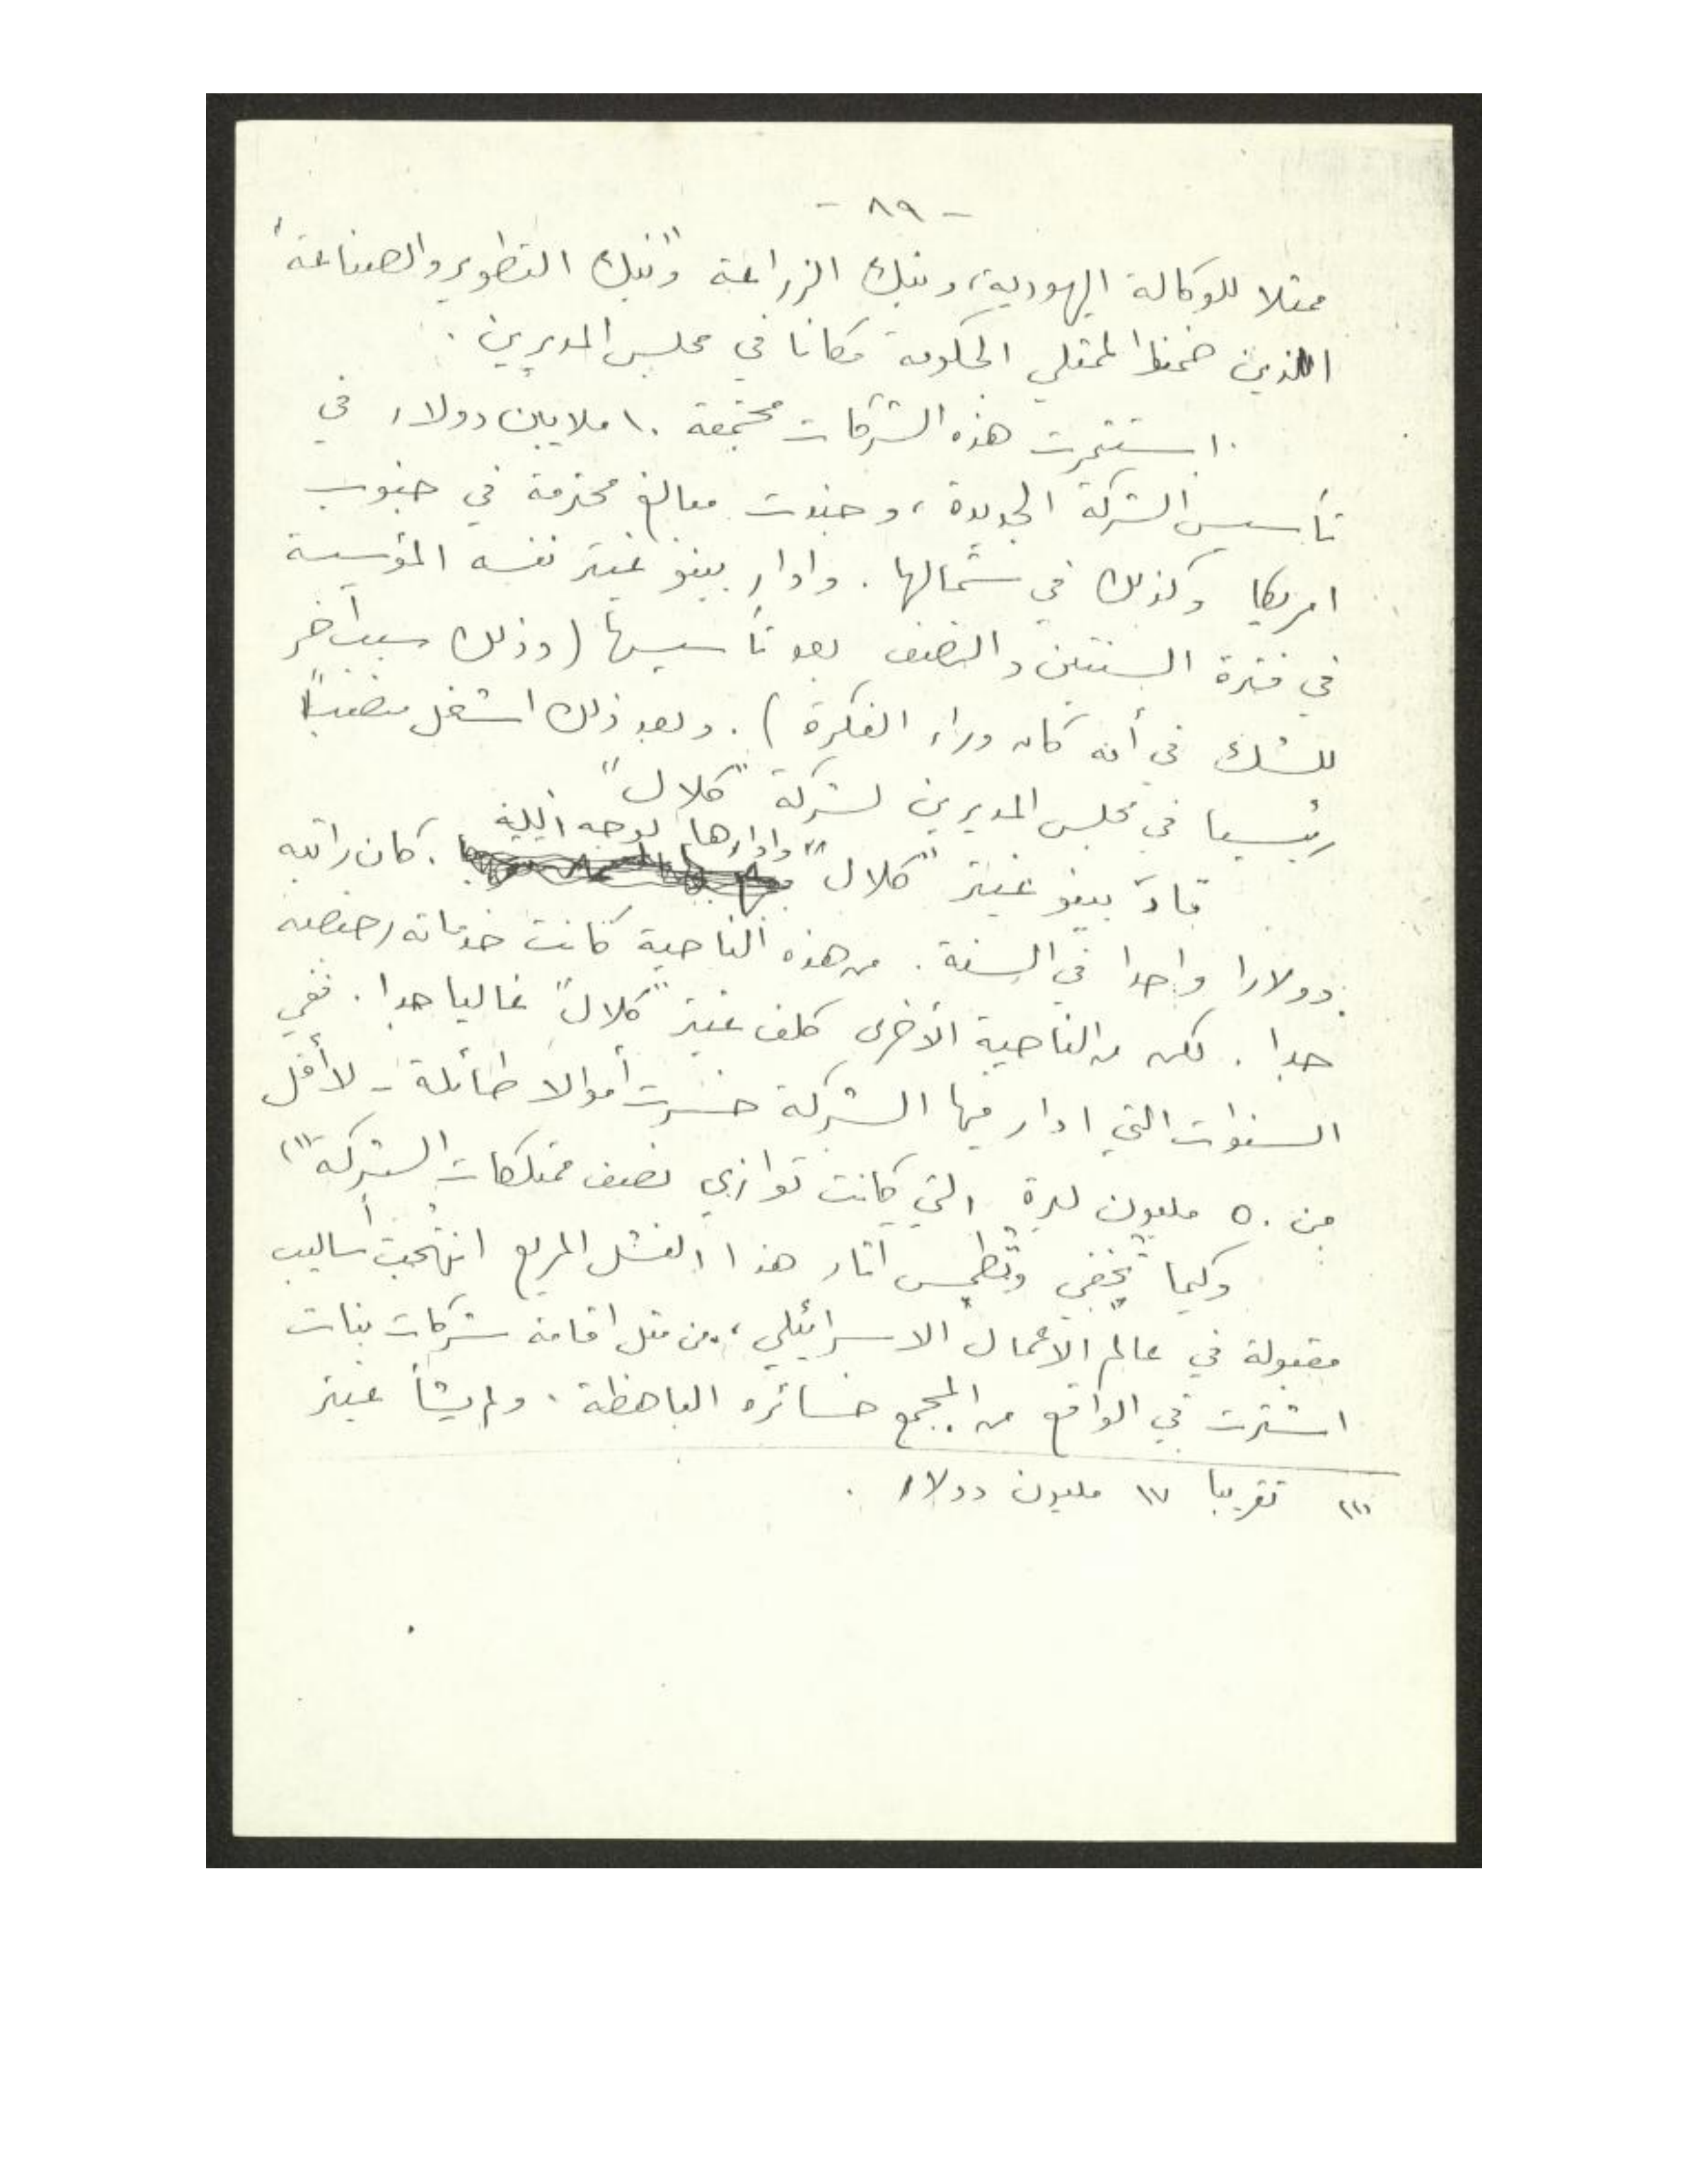 - ٨٩ -
ممثلا للوكالة اليهودية، وبنك الزراعة و"بنك التطوير والصناعة"
اللذين ضمنوا لممثلي الحكومة مكانا في مجلس المديرين .
استثمرت هذه الشركات مجتمعة ١٠ ملايين دولار في
تأسيس الشركة الجديدة ، وجندت مبالغ محترمة في جنوب
امريكا وكذلك في شمالها . وادار بينو غيتر نفسه المؤسسة
في فترة السنتين والنصف بعد تأسيسها (وذلك سبب آخر
للشك في أنه كان وراء الفكرة) . وبعد ذلك اشغل منصباً
رئيسيا في مجلس المديرين لشركة "كلال"
قاد بينو غيتر "كلال" وادارها لوجه . كان راتبه
دولارا واحدا في السنة . من هذه الناحية كانت خدماته رخيصة
جدا . لكن من الناحية الأخرى كلف غيتر "كلال" غاليا جدا . ففي
السنوات التي ادار فيها الشركة خسرت أموالا طائلة - لا أقل
من ٥٠ مليون ليرة التي كانت توازي نصف ممتلكات الشركة (١)
وكيما تخفي وتطمس آثار هذا الفشل المريع انتهجت أساليب
مقبولة في عالم الاعمال الاسرائيلي ، من مثل اقامة شركات بنات
اشترت في الواقع من المجمع خسائره الباهظة . ولم يشأ غيتر
(١) تقريبا ١٧ مليون دولار .